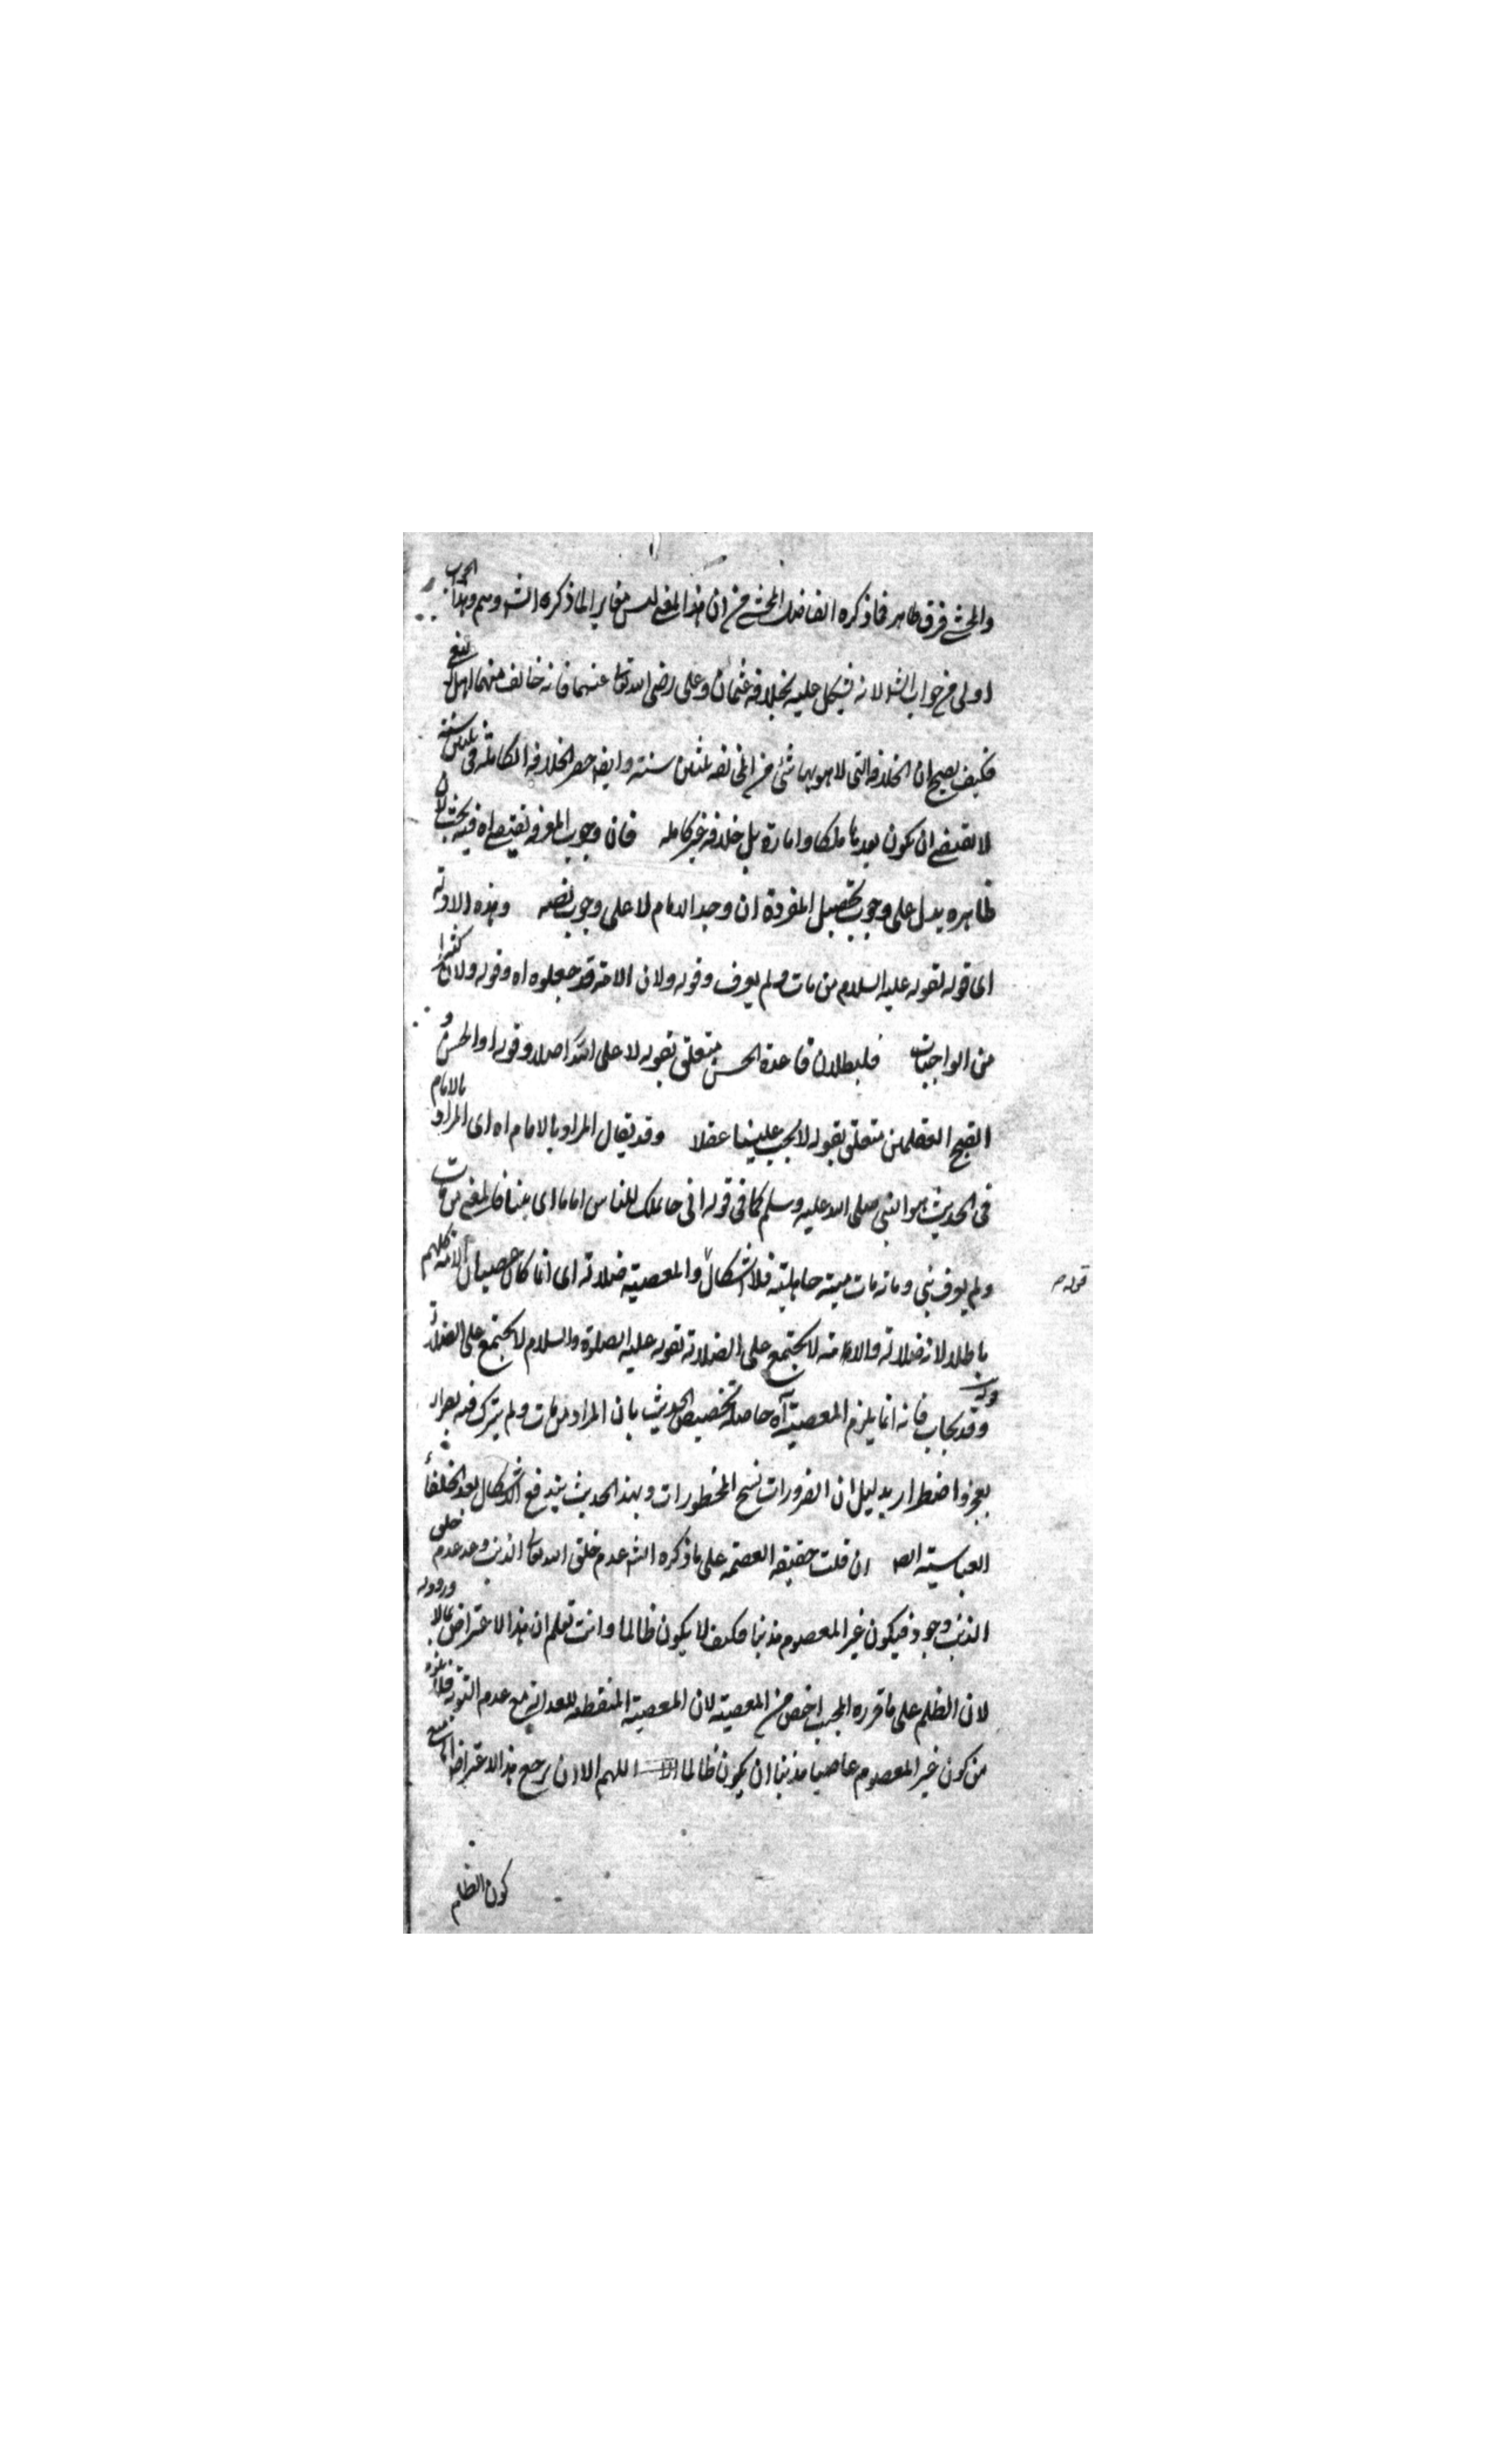 والمحشي فرق ظاهر فما ذكره الفاضل المحشي من ان هذا المعنى ليس مغايرا لما ذكره الش وهم وهذا الجواب
اولى من جواب الش لانه يشكل عليه بخلافة عثمان وعلى رضى الله تعا عنهما فانه خالف منهما اهل البغي
فكيف يصح ان الخلافة التى لا هو بها شئ من المخالفه ثلثين سنة وايضا حصر الخلافة الكاملة فى ثلثين سنة
لا يقتضى ان يكون بعدها ملكا وامارة بل خلافة غير كاملة فان وجوب المعرفة يقتضى اه فيه بحث لان
ظاهره يدل على وجوب تحصيل المعرفة ان وجد الامام لا على وجوب نصبه وهذه الادلة
اى قوله لقوله عليه السلام من مات ولم يعرف وقوله ولان الامة قد جعلوه اه وقوله ولان كثيرا
من الواجبات فلبطلان قاعدة الحسن متعلق بقوله لا على الله اصلا وقوله او الحسن و
القبح العقليين متعلق بقوله لا يجب علينا عقلا وقد يقال المراد بالامام اه اى المراد بالامام
فى الحديث هو النبى صلى الله عليه وسلم كما فى قوله انى جاعلك للناس اماما اى نبيا فالمعنى من مات
ولم يعرف نبى زمانه مات ميتة جاهلية فلا اشكال والمعصية ضلالة اى انما كان عصيان الامة كلهم
قوله م
باطلا لانه ضلالة والامة لا تجتمع على الضلالة لقوله عليه الصلوة والسلام لا تجتمع على الضلالة
وقد يجاب فانه انما يلزم المعصية آه حاصله تخصيص الحديث بان المراد من مات ولم يترك معرفته
بعجز واضطرار بدليل ان الضرورات تبيح المحظورات وبهذا الحديث يندفع الاشكال بعد الخلفاء
العباسية ايضا ان قلت حقيقة العصمة على ما ذكره الش عدم خلق الله تعا الذنب وعدم عدم خلق
الذنب وجوده فيكون غير المعصوم مذنبا فكيف لا يكون ظالما وانت تعلم ان هذا الاعتراض مما لا ورود له
لان الظلم على ما قرره المجيب اخص من المعصية لان المعصية المسقطة للعدالة مع عدم التوبة فلا يلزم
من كون غير المعصوم عاصيا مذنبا ان يكون ظالما اللهم الا ان يرجع هذا الاعتراض الى منع
كون الظلم